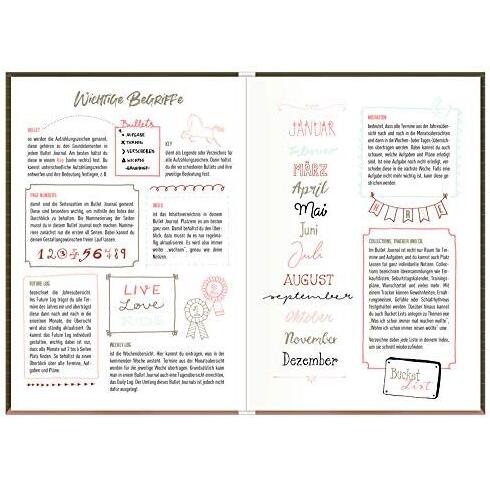 WICHTIGE BEGRIFFE
BULLET
so werden die Aufzählungszeichen genannt,
diese gehören zu den Grundelementen in
jedem Bullet Journal. Am besten hältst du
diese in einem Key (siehe rechts) fest. Du
kannst unterschiedliche Aufzählungszeichen
entwerfen und ihre Bedeutung festlegen, z. B.
Bullets
AUFGABE
TERMIN
VERSCHOBEN
WICHTIG
KEY
dient als Legende oder Verzeichnis für
alle Aufzählungszeichen. Darin hältst
du die verschiedenen Bullets und ihre
jeweilige Bedeutung fest.
PAGE NUMBERS
damit sind die Seitenzahlen im Bullet Journal gemeint.
Diese sind besonders wichtig, um mithilfe des Index den
Durchblick zu behalten. Die Nummerierung der Seiten
musst du in deinem Bullet Journal noch machen.
1 2 3 4 5 6 7 8 9
INDEX
ist das Inhaltsverzeichnis in
deinem Bullet Journal. Platziere es am besten
ganz vorn. Damit behältst du den Über-
blick, dass musst du es nur regelmä-
ßig aktualisieren. Es wird also immer
weiter „wachsen", genau wie deine
Notizen.
FUTURE LOG
bezeichnet die Jahresübersicht.
Ins Future Log trägst du alle Ter-
mine des Jahres ein und überträgst
diese dann nach und nach in
die einzelnen Monate, die Übersicht
wird also ständig aktualisiert. Du
kannst das Future Log individuell
gestalten, wichtig dabei ist nur,
dass alle Monate auf 2 bis 4 Seiten
Platz finden. So behältst du einen
Überblick über alle Termine, Auf-
gaben und Pläne.
LIVE
Love
WEEKLY LOG
ist die Wochenübersicht. Hier kannst du eintragen, was in der
kommenden Woche ansteht. Termine aus der Monatsübersicht
werden für die jeweilige Woche übertragen. Grundsätzlich kann
man in einem Bullet Journal auch eine Tagesübersicht einrichten,
das Daily Log. Der Umfang dieses Bullet Journals ist jedoch nicht
dafür ausgelegt.
JANUAR
Februar
MÄRZ
April
Mai
Juni
Juli
AUGUST
september
Oktober
November
Dezember
MIGRATION
bedeutet, dass alle Termine aus der Jahresüber-
sicht nach und nach in die Monatsübersichten
und dann in die Wochen- (oder Tages-)übersicht
übertragen werden. Dabei kannst du auch
schauen, welche Aufgaben und Pläne erledigt
sind. Ist eine Aufgabe noch nicht erledigt, ver-
schiebe diese in die nächste Woche. Falls eine
Aufgabe nicht mehr wichtig ist, kann diese ge-
strichen werden.
COLLECTIONS, TRACKER UND CO.
Im Bullet Journal ist nicht nur Raum für Ter-
mine und Aufgaben, und du kannst auch Platz
lassen für ganz individuelle Notizen. Collec-
tions bezeichnen Ideensammlungen wie Ein-
kaufslisten, Geburtstagskalender, Trainings-
pläne, Wunschzettel und vieles mehr. Mit
einem Tracker können Gewohnheiten, Ernäh-
rungsweisen, Gefühle oder Schlafrhythmus
festgehalten werden. Darüber hinaus kannst
du auch Bucket Lists anlegen zu Themen wie
„Was ich schon immer mal machen wollte",
„Wohin ich schon immer reisen wollte" usw.
Verzeichne dabei jede Liste in deinem Index,
um sie schnell wiederzufinden.
Bucket
List